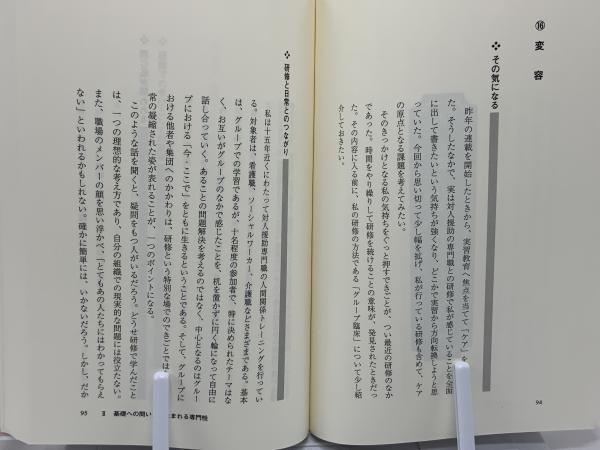 ⑯ 変容
❖ その気になる
昨年の連載を開始したときから、実習教育へ焦点を当てて「ケア」を
た。そうしたなかで、実は対人援助の専門職との研修で私が感じていることを全面
に出して書きたいという気持ちが強くなり、どこかで実習から方向転換しようと思
っていた。今回から思い切って少し幅を拡げ、私が行っている研修も含めて、ケア
の原点となる課題を考えてみたい。
そのきっかけとなる私の気持ちをぐっと押すできごとが、つい最近の研修のなか
であった。時間をやり繰りして研修を続けることの意味が、発見されたときだっ
た。その内容に入る前に、私の研修の方法である「グループ臨床」について少し紹
介しておきたい。
94
❖ 研修と日常とのつながり
私は十五年近くにわたって対人援助専門職の人間関係トレーニングを行ってい
る。対象者は、看護職、ソーシャルワーカー、介護職などさまざまである。基本
は、グループでの学習であるが、十名程度の参加者で、特に決められたテーマはな
く、お互いがグループのなかで感じたことを、机を置かずに円く輪になって自由に
話し合っていく。あることの問題解決を考えるのではなく、中心となるのはグルー
プにおける「今・ここで」をともに生きるということである。そして、グループに
おける他者や集団へのかかわりは、研修という特別な場でのできごとでは
常の凝縮された姿が表れることが、一つのポイントになる。
このような話を聞くと、疑問をもつ人がいるだろう。どうせ研修で学んだこと
は、一つの理想的な考え方であり、自分の組織での現実的な問題には役立たない。
また、職場のメンバーの顔を思い浮かべ、「とてもあの人たちにはわかってもらえ
ない」といわれるかもしれない。確かに簡単には、いかないだろう。しかし、だか
95 Ⅱ 基礎への問い まれる専門性